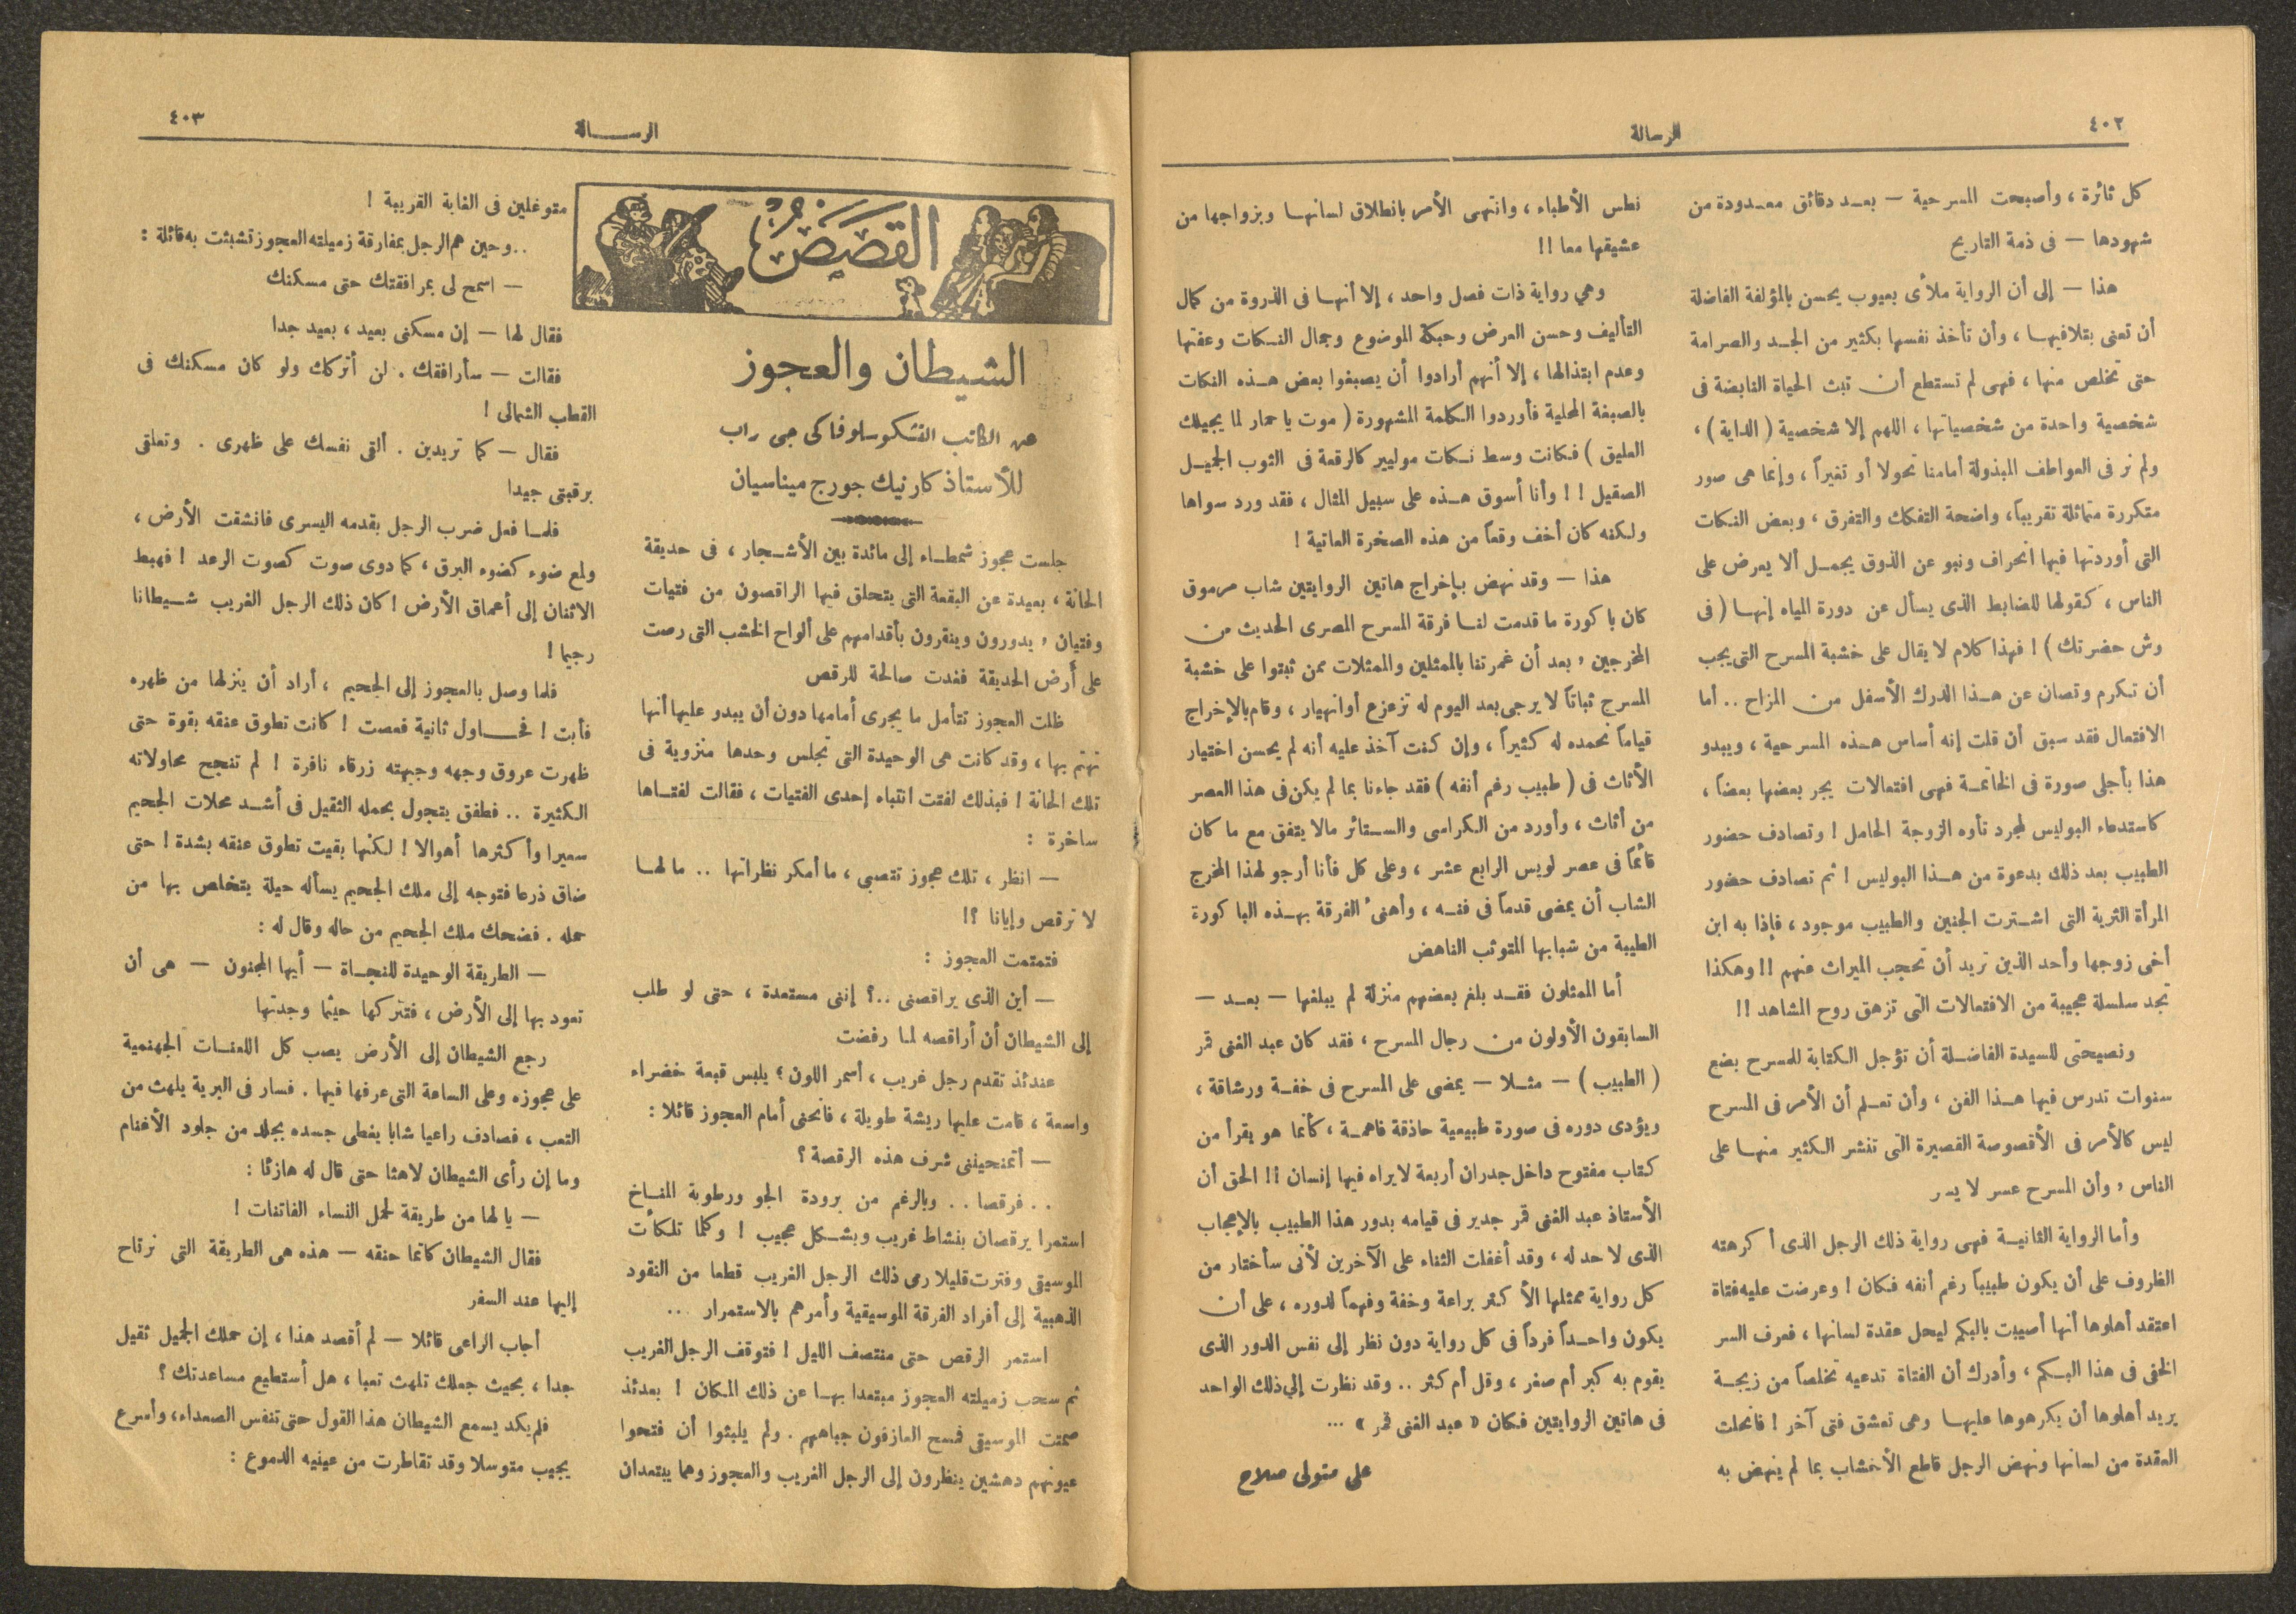 ٤٠٢
الرسالة
كل ثائرة ، وأصبحت المسرحية — بعد دقائق معدودة من
شهودها — فى ذمة التاريخ
هذا — إلى أن الرواية ملأى بعيوب يحسن بالمؤلفة الفاضلة
أن تعنى بتلافيها ، وأن تأخذ نفسها بكثير من الجد والصرامة
حتى تخلص منها ، فهى لم تستطع أن تبث الحياة النابضة فى
شخصية واحدة من شخصياتها ، اللهم إلا شخصية ( الداية ) ،
ولم نر فى العواطف المبذولة أمامنا تحولا أو تغيراً ، وإنما هى صور
متكررة متماثلة تقريباً ، واضحة التفكك والتفرق ، وبعض النكات
التى أوردتها فيها انحراف ونبو عن الذوق يجمل ألا يعرض على
الناس ، كقولها للضابط الذى يسأل عن دورة المياه إنها ( فى
وش حضرتك ) ! فهذا كلام لا يقال على خشبة المسرح التى يجب
أن تكرم وتصان عن هذا الدرك الأسفل من المزاح .. أما
الافتعال فقد سبق أن قلت إنه أساس هذه المسرحية ، ويبدو
هذا بأجلى صورة فى الخاتمة فهى افتعالات يجر بعضها بعضاً ،
كاستدعاء البوليس لمجرد تأوه الزوجة الحامل ! وتصادف حضور
الطبيب بعد ذلك بدعوة من هذا البوليس ! ثم تصادف حضور
المرأة الثرية التى اشترت الجنين والطبيب موجود ، فإذا به ابن
أخى زوجها وأحد الذين تريد أن تحجب الميراث عنهم !! وهكذا
تجد سلسلة عجيبة من الافتعالات التى تزهق روح المشاهد !!
ونصيحتى للسيدة الفاضلة أن تؤجل الكتابة للمسرح بضع
سنوات تدرس فيها هذا الفن ، وأن تعلم أن الأمر فى المسرح
ليس كالأمر فى الأقصوصة القصيرة التى تنشر الكثير منها على
الناس ، وأن المسرح عسر لا يسر
وأما الرواية الثانية فهى رواية ذلك الرجل الذى أكرهته
الظروف على أن يكون طبيباً رغم أنفه فكان ! وعرضت عليه فتاة
اعتقد أهلوها أنها أصيبت بالبكم ليحل عقدة لسانها ، فعرف السر
الخفى فى هذا البكم ، وأدرك أن الفتاة تدعيه تخلصاً من زيجة
يريد أهلوها أن يكرهوها عليها وهى تعشق فتى آخر ! فانحلت
العقدة من لسانها ونهض الرجل قاطع الأخشاب بما لم ينهض به
نطس الأطباء ، وانتهى الأمر بانطلاق لسانها وبزواجها من
عشيقها معا !!
وهي رواية ذات فصل واحد ، إلا أنها فى الذروة من كمال
التأليف وحسن العرض وحبكة الموضوع وجمال النكات وعفتها
وعدم ابتذالها ، إلا أنهم أرادوا أن يصبغوا بعض هذه النكات
بالصبغة المحلية فأوردوا الكلمة المشهورة ( موت يا حمار لما يجيلك
العليق ) فكانت وسط نكات موليير كالرقعة فى الثوب الجميل
الصقيل !! وأنا أسوق هذه على سبيل المثال ، فقد ورد سواها
ولكنه كان أخف وقعاً من هذه الصخرة العاتية !
هذا — وقد نهض بإخراج هاتين الروايتين شاب مرموق
كان باكورة ما قدمت لنا فرقة المسرح المصرى الحديث من
المخرجين ، بعد أن غمرتنا بالممثلين والممثلات ممن ثبتوا على خشبة
المسرح ثباتاً لا يرجى بعد اليوم له تزعزع أو انهيار ، وقام بالإخراج
قياماً نحمده له كثيراً ، وإن كنت آخذ عليه أنه لم يحسن اختيار
الأثاث فى ( طبيب رغم أنفه ) فقد جاءنا بما لم يكن فى هذا العصر
من أثاث ، وأورد من الكراسى والستائر مالا يتفق مع ما كان
قائماً فى عصر لويس الرابع عشر ، وعلى كل فأنا أرجو لهذا المخرج
الشاب أن يمضى قدماً فى فنه ، وأهنئ الفرقة بهذه الباكورة
الطيبة من شبابها المتوثب الناهض
أما الممثلون فقد بلغ بعضهم منزلة لم يبلغها — بعد —
السابقون الأولون من رجال المسرح ، فقد كان عبد الغنى قمر
( الطبيب ) — مثلا — يمضى على المسرح فى خفة ورشاقة ،
ويؤدى دوره فى صورة طبيعية حاذقة فاهمة ، كأنما هو يقرأ من
كتاب مفتوح داخل جدران أربعة لا يراه فيها إنسان !! الحق أن
الأستاذ عبد الغنى قمر جدير فى قيامه بدور هذا الطبيب بالإعجاب
الذى لا حد له ، وقد أغفلت الثناء على الآخرين لأنى سأختار من
كل رواية ممثلها الأكثر براعة وخفة وفهماً لدوره ، على أن
يكون واحداً فرداً فى كل رواية دون نظر إلى نفس الدور الذى
يقوم به كبر أم صغر ، وقل أم كثر .. وقد نظرت إلي ذلك الواحد
فى هاتين الروايتين فكان « عبد الغنى قمر » ...
على متولى صلاح
الرسالة
٤٠٣
القصص
الشيطان والعجوز
عن الكاتب التشكوسلوفاكى جى راب
للأستاذ كارنيك جورج ميناسيان
جلست عجوز شمطاء إلى مائدة بين الأشجار ، فى حديقة
الحانة ، بعيدة عن البقعة التى يتحلق فيها الراقصون من فتيات
وفتيان ، يدورون وينقرون بأقدامهم على ألواح الخشب التى رصت
على أرض الحديقة فغدت صالحة للرقص
ظلت العجوز تتأمل ما يجرى أمامها دون أن يبدو عليها أنها
تهتم بها ، وقد كانت هى الوحيدة التى تجلس وحدها منزوية فى
تلك الحانة ! فبذلك لفتت انتباه إحدى الفتيات ، فقالت لفتاها
ساخرة :
— انظر ، تلك عجوز تتصبى ، ما أمكر نظراتها .. ما لها
لا ترقص وإيانا ؟!
فتمتمت العجوز :
— أين الذى يراقصنى ..؟ إننى مستعدة ، حتى لو طلب
إلى الشيطان أن أراقصه لما رفضت
عندئذ تقدم رجل غريب ، أسمر اللون ؛ يلبس قبعة خضراء
واسعة ، قامت عليها ريشة طويلة ، فانحنى أمام العجوز قائلا :
— أتمنحيننى شرف هذه الرقصة ؟
.. فرقصا .. وبالرغم من برودة الجو ورطوبة المناخ
استمرا يرقصان بنشاط غريب وبشكل عجيب ! وكلما تلكأت
الموسيقى وفترت قليلا رمى ذلك الرجل الغريب قطعا من النقود
الذهبية إلى أفراد الفرقة الموسيقية وأمرهم بالاستمرار ...
استمر الرقص حتى منتصف الليل ! فتوقف الرجل الغريب
ثم سحب زميلته العجوز مبتعدا بها عن ذلك المكان ! بعدئذ
صمتت الموسيقى فمسح العازفون جباههم . ولم يلبثوا أن فتحوا
عيونهم دهشين ينظرون إلى الرجل الغريب والعجوز وهما يبتعدان
متوغلين فى الغابة القريبة !
.. وحين هم الرجل بمفارقة زميلته العجوز تشبثت به قائلة :
— اسمح لى بمرافقتك حتى مسكنك
فقال لها — إن مسكنى بعيد ، بعيد جدا
فقالت — سأرافقك . لن أتركك ولو كان مسكنك فى
القطب الشمالى !
فقال — كما تريدين . ألقى نفسك على ظهرى . وتعلقى
برقبتى جيدا
فلما فعل ضرب الرجل بقدمه اليسرى فانشقت الأرض ،
ولمع ضوء كضوء البرق ، كما دوى صوت كصوت الرعد ! فهبط
الاثنان إلى أعماق الأرض ! كان ذلك الرجل الغريب شيطانا
رجيما !
فلما وصل بالعجوز إلى الجحيم ، أراد أن ينزلها من ظهره
فأبت ! فحاول ثانية فعصت ! كانت تطوق عنقه بقوة حتى
ظهرت عروق وجهه وجبهته زرقاء نافرة ! لم تنجح محاولاته
الكثيرة .. فطفق يتجول بحمله الثقيل فى أشد محلات الجحيم
سعيرا وأكثرها أهوالا ! لكنها بقيت تطوق عنقه بشدة ! حتى
ضاق ذرعا فتوجه إلى ملك الجحيم يسأله حيلة يتخلص بها من
حمله . فضحك ملك الجحيم من حاله وقال له :
— الطريقة الوحيدة للنجاة — أيها المجنون — هى أن
تعود بها إلى الأرض ، فتتركها حيثما وجدتها
رجع الشيطان إلى الأرض يصب كل اللعنات الجهنمية
على عجوزه وعلى الساعة التى عرفها فيها . فسار فى البرية يلهث من
التعب ، فصادف راعيا شابا يغطى جسده بجلد من جلود الأغنام
وما إن رأى الشيطان لاهثا حتى قال له هازئا :
— يا لها من طريقة لحمل النساء الفاتنات !
فقال الشيطان كاتما حنقه — هذه هى الطريقة التى نرتاح
إليها عند السفر
أجاب الراعى قائلا — لم أقصد هذا ، إن حملك الجميل ثقيل
جدا ، بحيث جعلك تلهث تعبا ، هل أستطيع مساعدتك ؟
فلم يكد يسمع الشيطان هذا القول حتى تنفس الصعداء ، وأسرع
يجيب متوسلا وقد تقاطرت من عينيه الدموع :